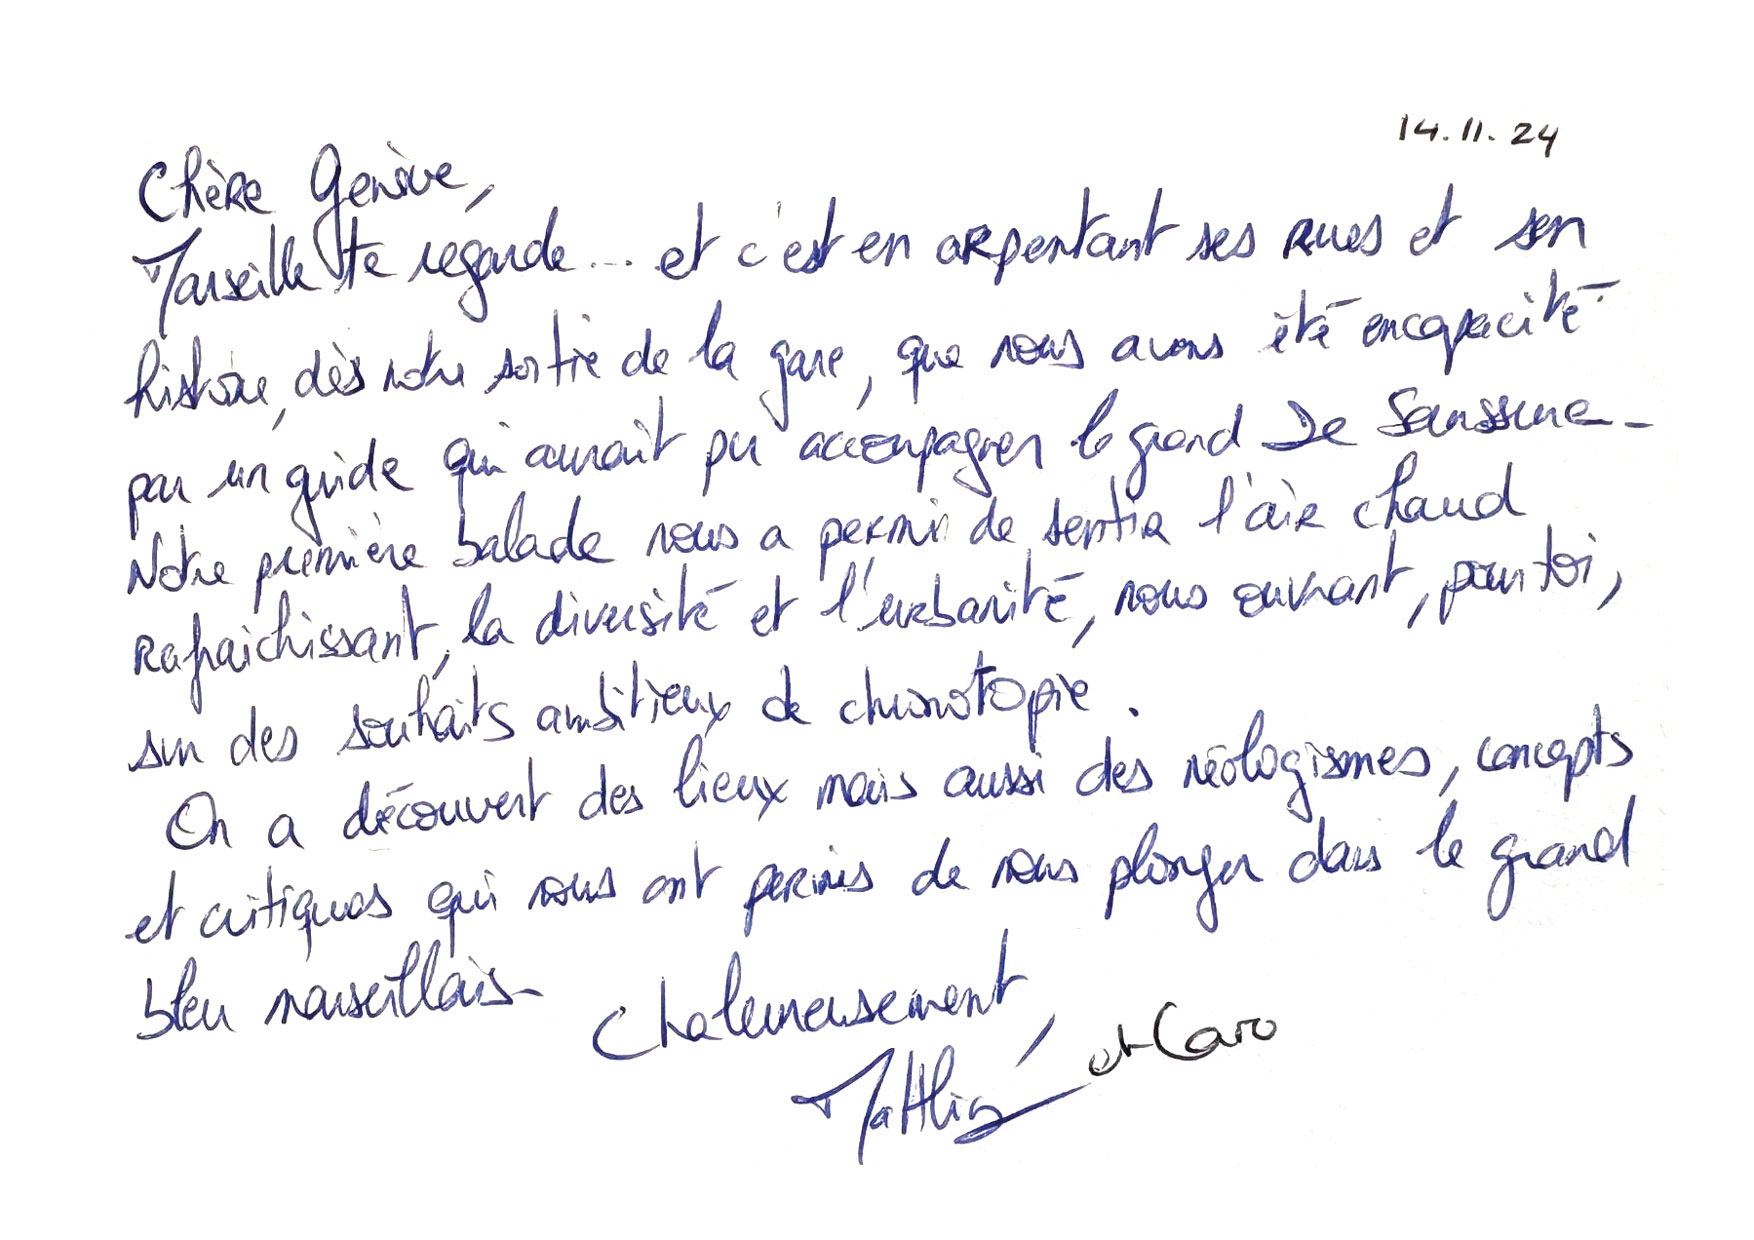 14.11.24
Chère Genève,
Marseille te regarde... et c'est en arpentant ses rues et son
histoire, dès notre sortie de la gare, que nous avons été encapacité
par un guide qui aurait pu accompagner le grand De Saussure.
Notre première balade nous a permi de sentir l'air chaud
rafraichissant, la diversité et l'urbanité, nous ouvrant, pour toi,
sur des souhaits ambitieux de chronotopie.
On a découvert des lieux mais aussi des néologismes, concepts
et critiques qui nous ont permis de nous plonger dans le grand
bleu marseillais.
Chaleureusement,
Matthias et Caro